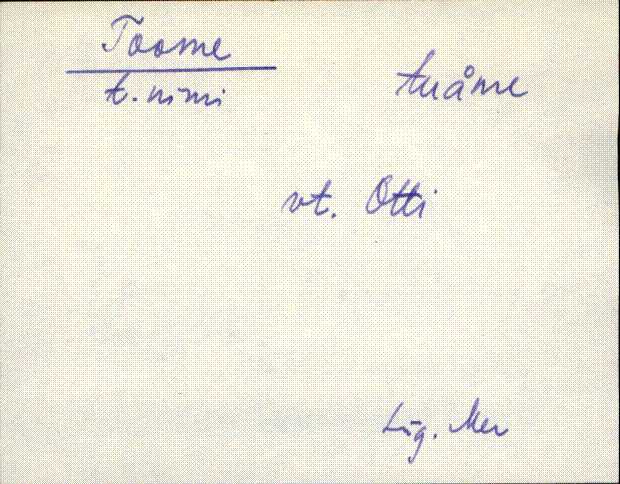 Toome
t. nimi
tuåme
vt. Otti
Lüg. Mer